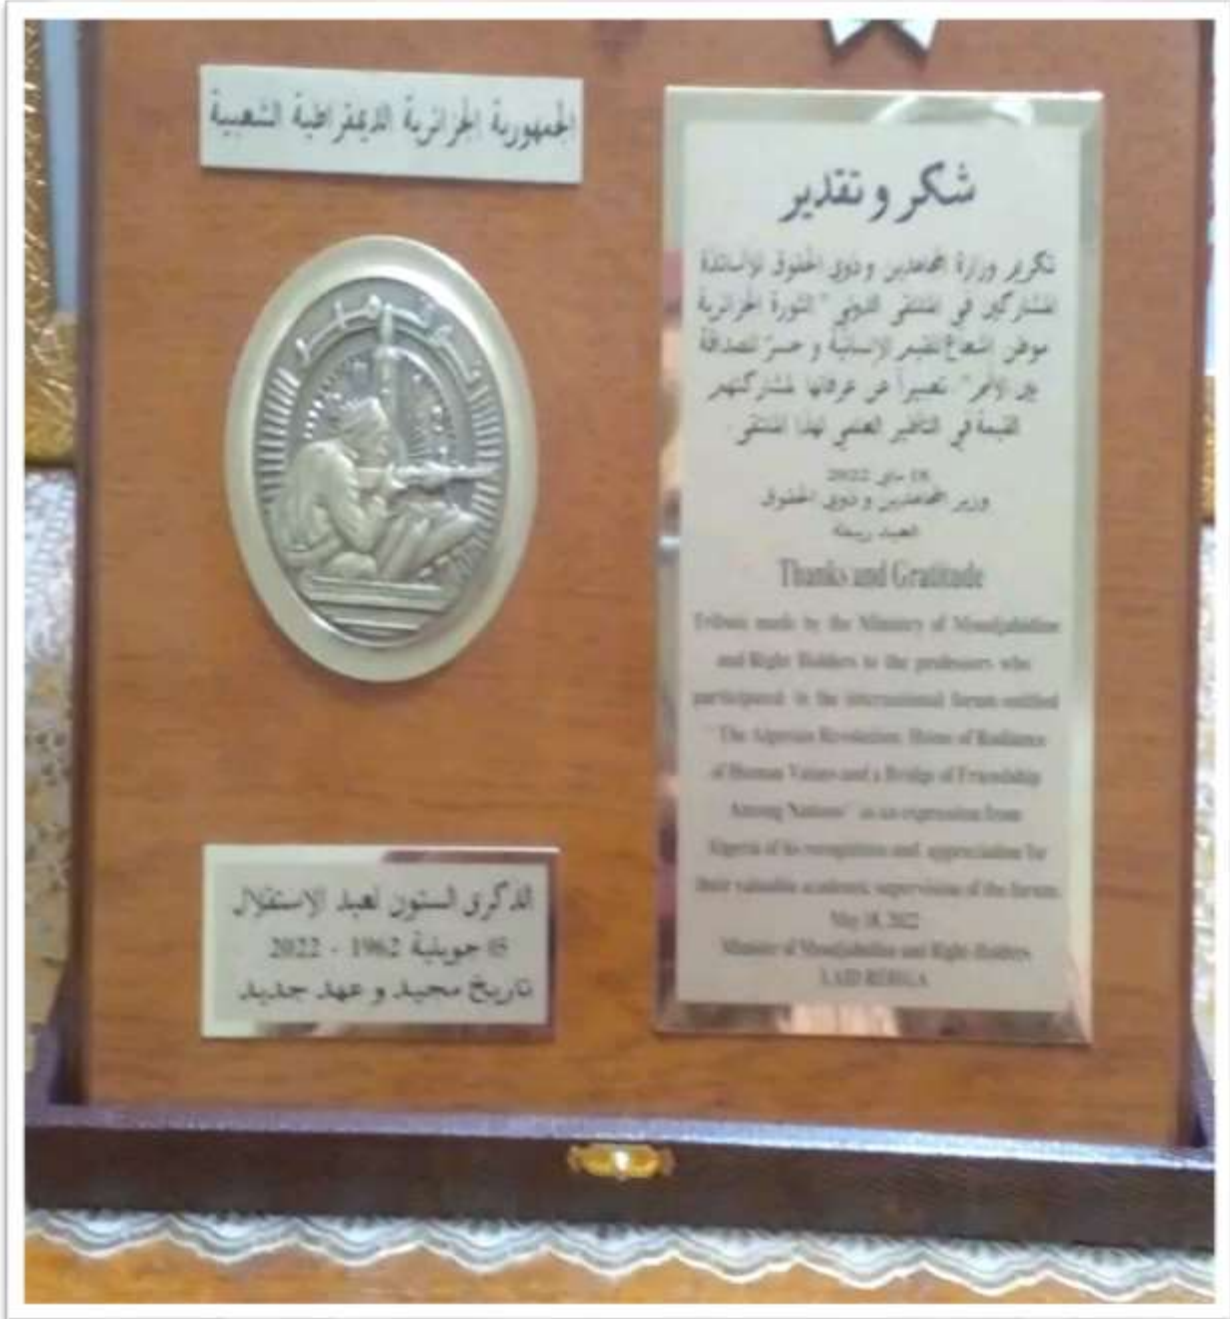 الجمهورية الجزائرية الديمقراطية الشعبية
شكر و تقدير
تكريم وزارة المجاهدين و ذوي الحقوق للأساتذة
المشاركين في الملتقى الدولي "الثورة الجزائرية
موطن إشعاع للقيم الإنسانية و جسر للصداقة
بين الأمم" تعبيراً عن عرفانها لمشاركتهم
القيمة في التأطير العلمي لهذا الملتقى
18 ماي 2022
وزير المجاهدين و ذوي الحقوق
العيد ربيقة
Thanks and Gratitude
Tribute made by the Ministry of Moudjahidine
and Right Holders to the professors who
participated in the international forum entitled
"The Algerian Revolution: of Radiance
of Human Values and a Bridge of Friendship
Among Nations" as an expression from
Algeria of its recognition and appreciation for
their valuable academic supervision of the forum.
May 18, 2022
Minister of Moudjahidine and Right-Holders
LAID REBIGA
الذكرى الستون لعيد الاستقلال
05 جويلية 1962 - 2022
تاريخ مجيد و عهد جديد